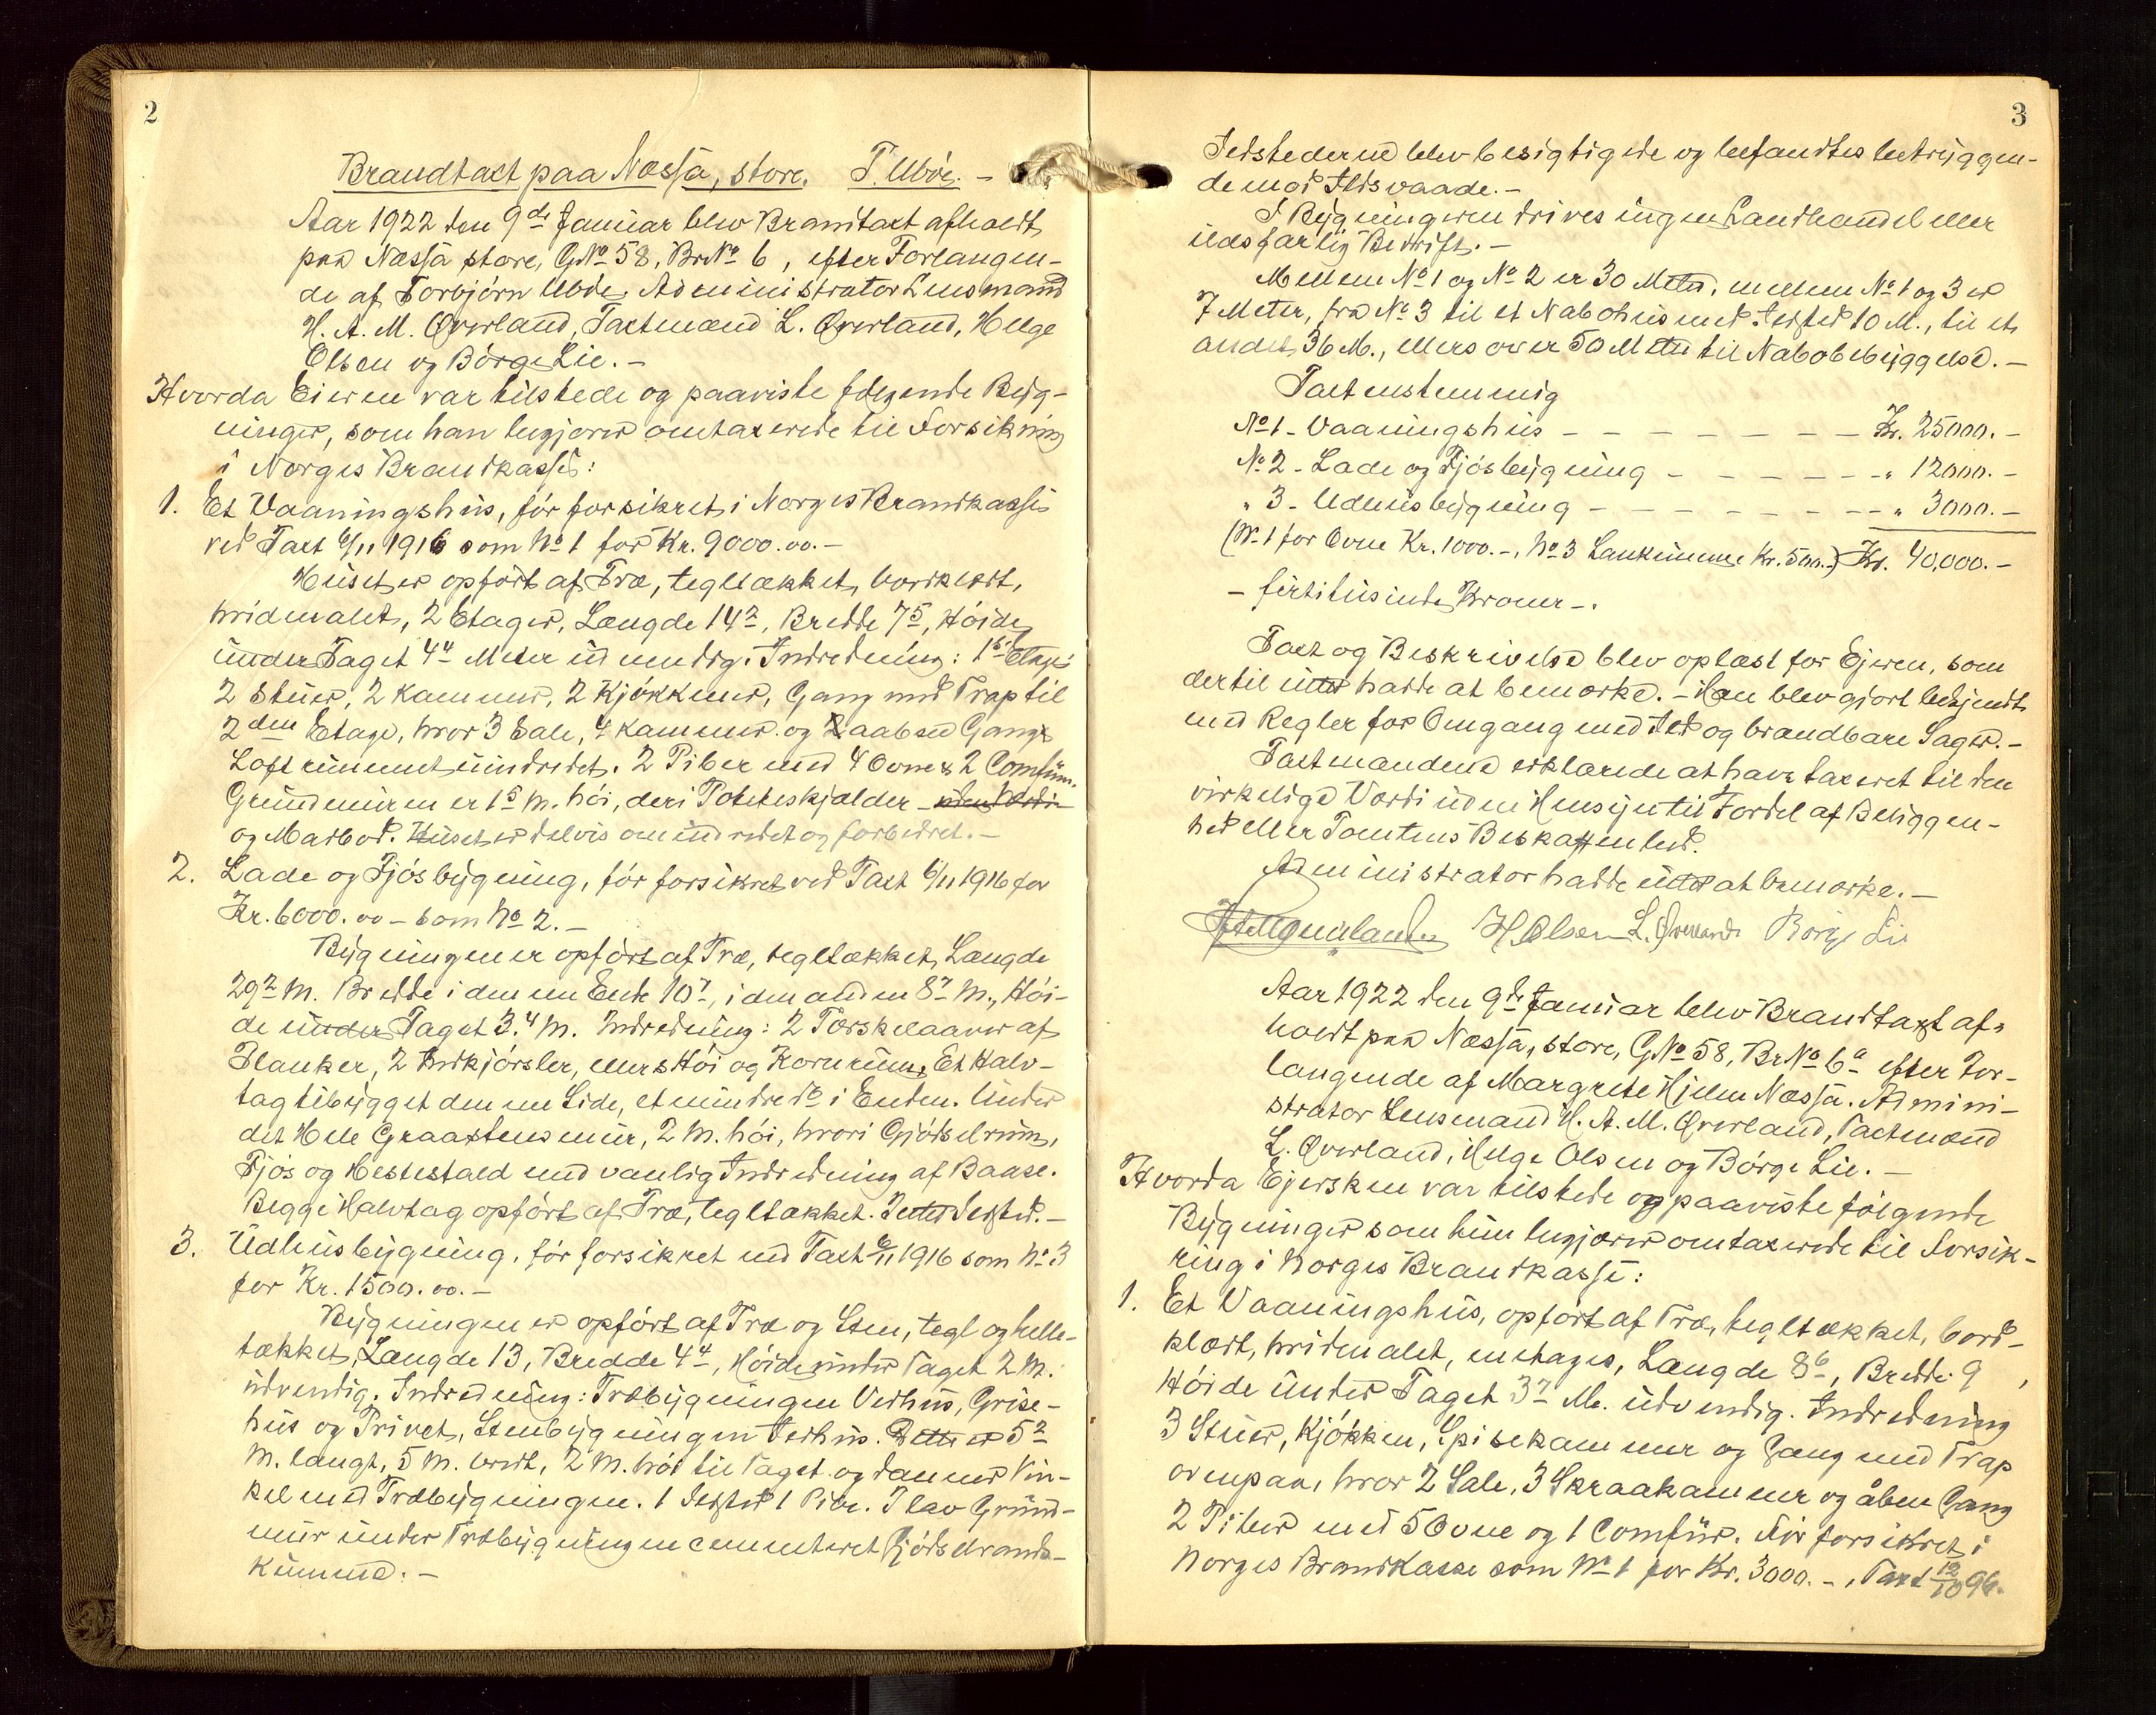 2
Brandtaxt paa Næsså, store. T. Ubøe. -
Aar 1922 den 9de Januar blev Brandtaxt afholdt
paa Næsså store, GNo 58, BrNo 6, efter Forlangen-
de af Torbjörn Ubøe, Administrator Lensmand
H. A. M. Qverland, Taxtmænd L. Qverland, Helge
Olsen og Börge Lie. -
Hvorda Eieren var tilstede og paaviste følgende Byg-
ninger, som han begjærer omtaxerede til Forsikring
i Norges Brandkasse:
1. Et Vaaningshus, för forsikret i Norges Brandkasse
ved Taxt 6/11 1916 som No 1 for Kr. 9000.00. -
Huset er opfört af Træ, teglækket, bordklædt,
hvidmalet, 2 Etager, Længde 14², Bredde 7⁵, Höide
under Taget 4⁴ Meter udvendig. Indredning: 1ste Etage
2 Stuer, 2 Kammer, 2 Kjökkener, Gang med Trap til
2den Etage, hvor 3 Sale, 4 Kammer og 2 aabne Gange
Loftrummet uindredet. 2 Piber med 4 Ovne & 2 Comfur.
Grundmuren er 1⁵ M. höi, deri Poteteskjælder
og Matbod. Huset er delvis omindredet og forbedret. -
2. Lade og Fjösbygning, för forsikret ved Taxt 6/11 1916 for
Kr. 6000.00 - som No 2. -
Bygningen er opfört af Træ, teglækket, Længde
29² M. Bredde i den ene Ende 10⁷, i den anden 8⁷ M., Höi-
de under Taget 3.⁴ M. Indredning: 2 Tærskelaaver af
Planker, 2 Indkjörsler, ellers Höi og Kornrum, Et Halv-
tag tilbygget den ene Side, et mindre do i Enden. Under
det Hele Graastensmur, 2 M. höi, hvori Gjödselrum,
Fjös og Hestestald med vanlig Indredning af Baase.
Begge Halvtag opfört af Træ, teglækket. Intet Ildsted. -
3. Udhusbygning, för forsikret ved Taxt 6/11 1916 som No 3
for Kr. 1500.00. -
Bygningen er opfört af Træ og Sten, tegl og helle-
tækket, Længde 13, Bredde 4⁴, Höide under Taget 2 M.
udvendig. Indredning: Træbygningen Vedhus, Grise-
hus og Privet, Stenbygningen Ildhus. Dette er 5²
M. langt, 5 M. bredt, 2 M. höi til Taget og danner Vin-
kel med Træbygningen. 1 Ildsted 1 Pibe. I lav Grund-
mur under Træbygningen cementeret Gjödselvands-
kumme. -
3
Ildstederne blev besigtigede og befandtes betryggen-
de mod Ildsvaade. -
I Bygningerne drives ingen Landhandel eller
ildsfarlig Bedrift. -
Mellem No 1 og No 2 er 30 Meter, mellem No 1 og 3 er
7 Meter, fra No 3 til et Nabohus med Ildsted 10 M., til et
andet 36 M., ellers over 50 Meter til Nabobebyggelse. -
Taxt enstemmig
No 1 - Vaaningshus - - - - - - - Kr. 25000. -
No 2 - Lade og Fjösbygning - - - - - - " 12000. -
" 3 - Udhusbygning - - - - - - - - " 3000. -
(No 1 for Ovne Kr. 1000. -, No 3 Landkumme Kr. 500. -) Kr. 40,000. -
- firtitusinde Kroner -.
Taxt og Beskrivelse blev oplæst for Ejeren, som
dertil intet hadde at bemærke. - Han blev gjort bekjendt
med Regler for Omgang med Ild og brandbare Sager. -
Taxtmændene erklærede at have taxeret til den
virkelige Værdi uden Hensyn til Fordel af Beliggen-
hed eller Tomtens Beskaffenhed.
Administrator hadde intet at bemærke. -
H Olsen L. Qverland Börge Lie
Aar 1922 den 9de Januar blev Brandtaxt af-
holdt paa Næsså, store, GNo 58, BrNo 6a efter For-
langende af Margrete Hjelm Næsså. Admini-
strator Lensmand H. A. M. Qverland, Taxtmænd
L. Qverland, Helge Olsen og Börge Lie. -
Hvorda Ejersken var tilstede og paaviste fölgende
Bygninger som hun begjærer omtaxerede til Forsik-
ring i Norges Brandkasse:
1. Et Vaaningshus, opfört af Træ, teglækket, bord-
klædt, hvidmalet, enetages, Længde 8⁶, Bredde 9,
Höide under Taget 3⁷ M. udvendig. Indredning
3 Stuer, Kjökken, Spisekammer og Gang med Trap
ovenpaa, hvor 2 Sale, 3 Skraakammer og åben Gang
2 Piber med 5 Ovne og 1 Comfur. För forsikret i
Norges Brandkasse som No 1 for Kr. 3000. -, Taxt 12/10 96.